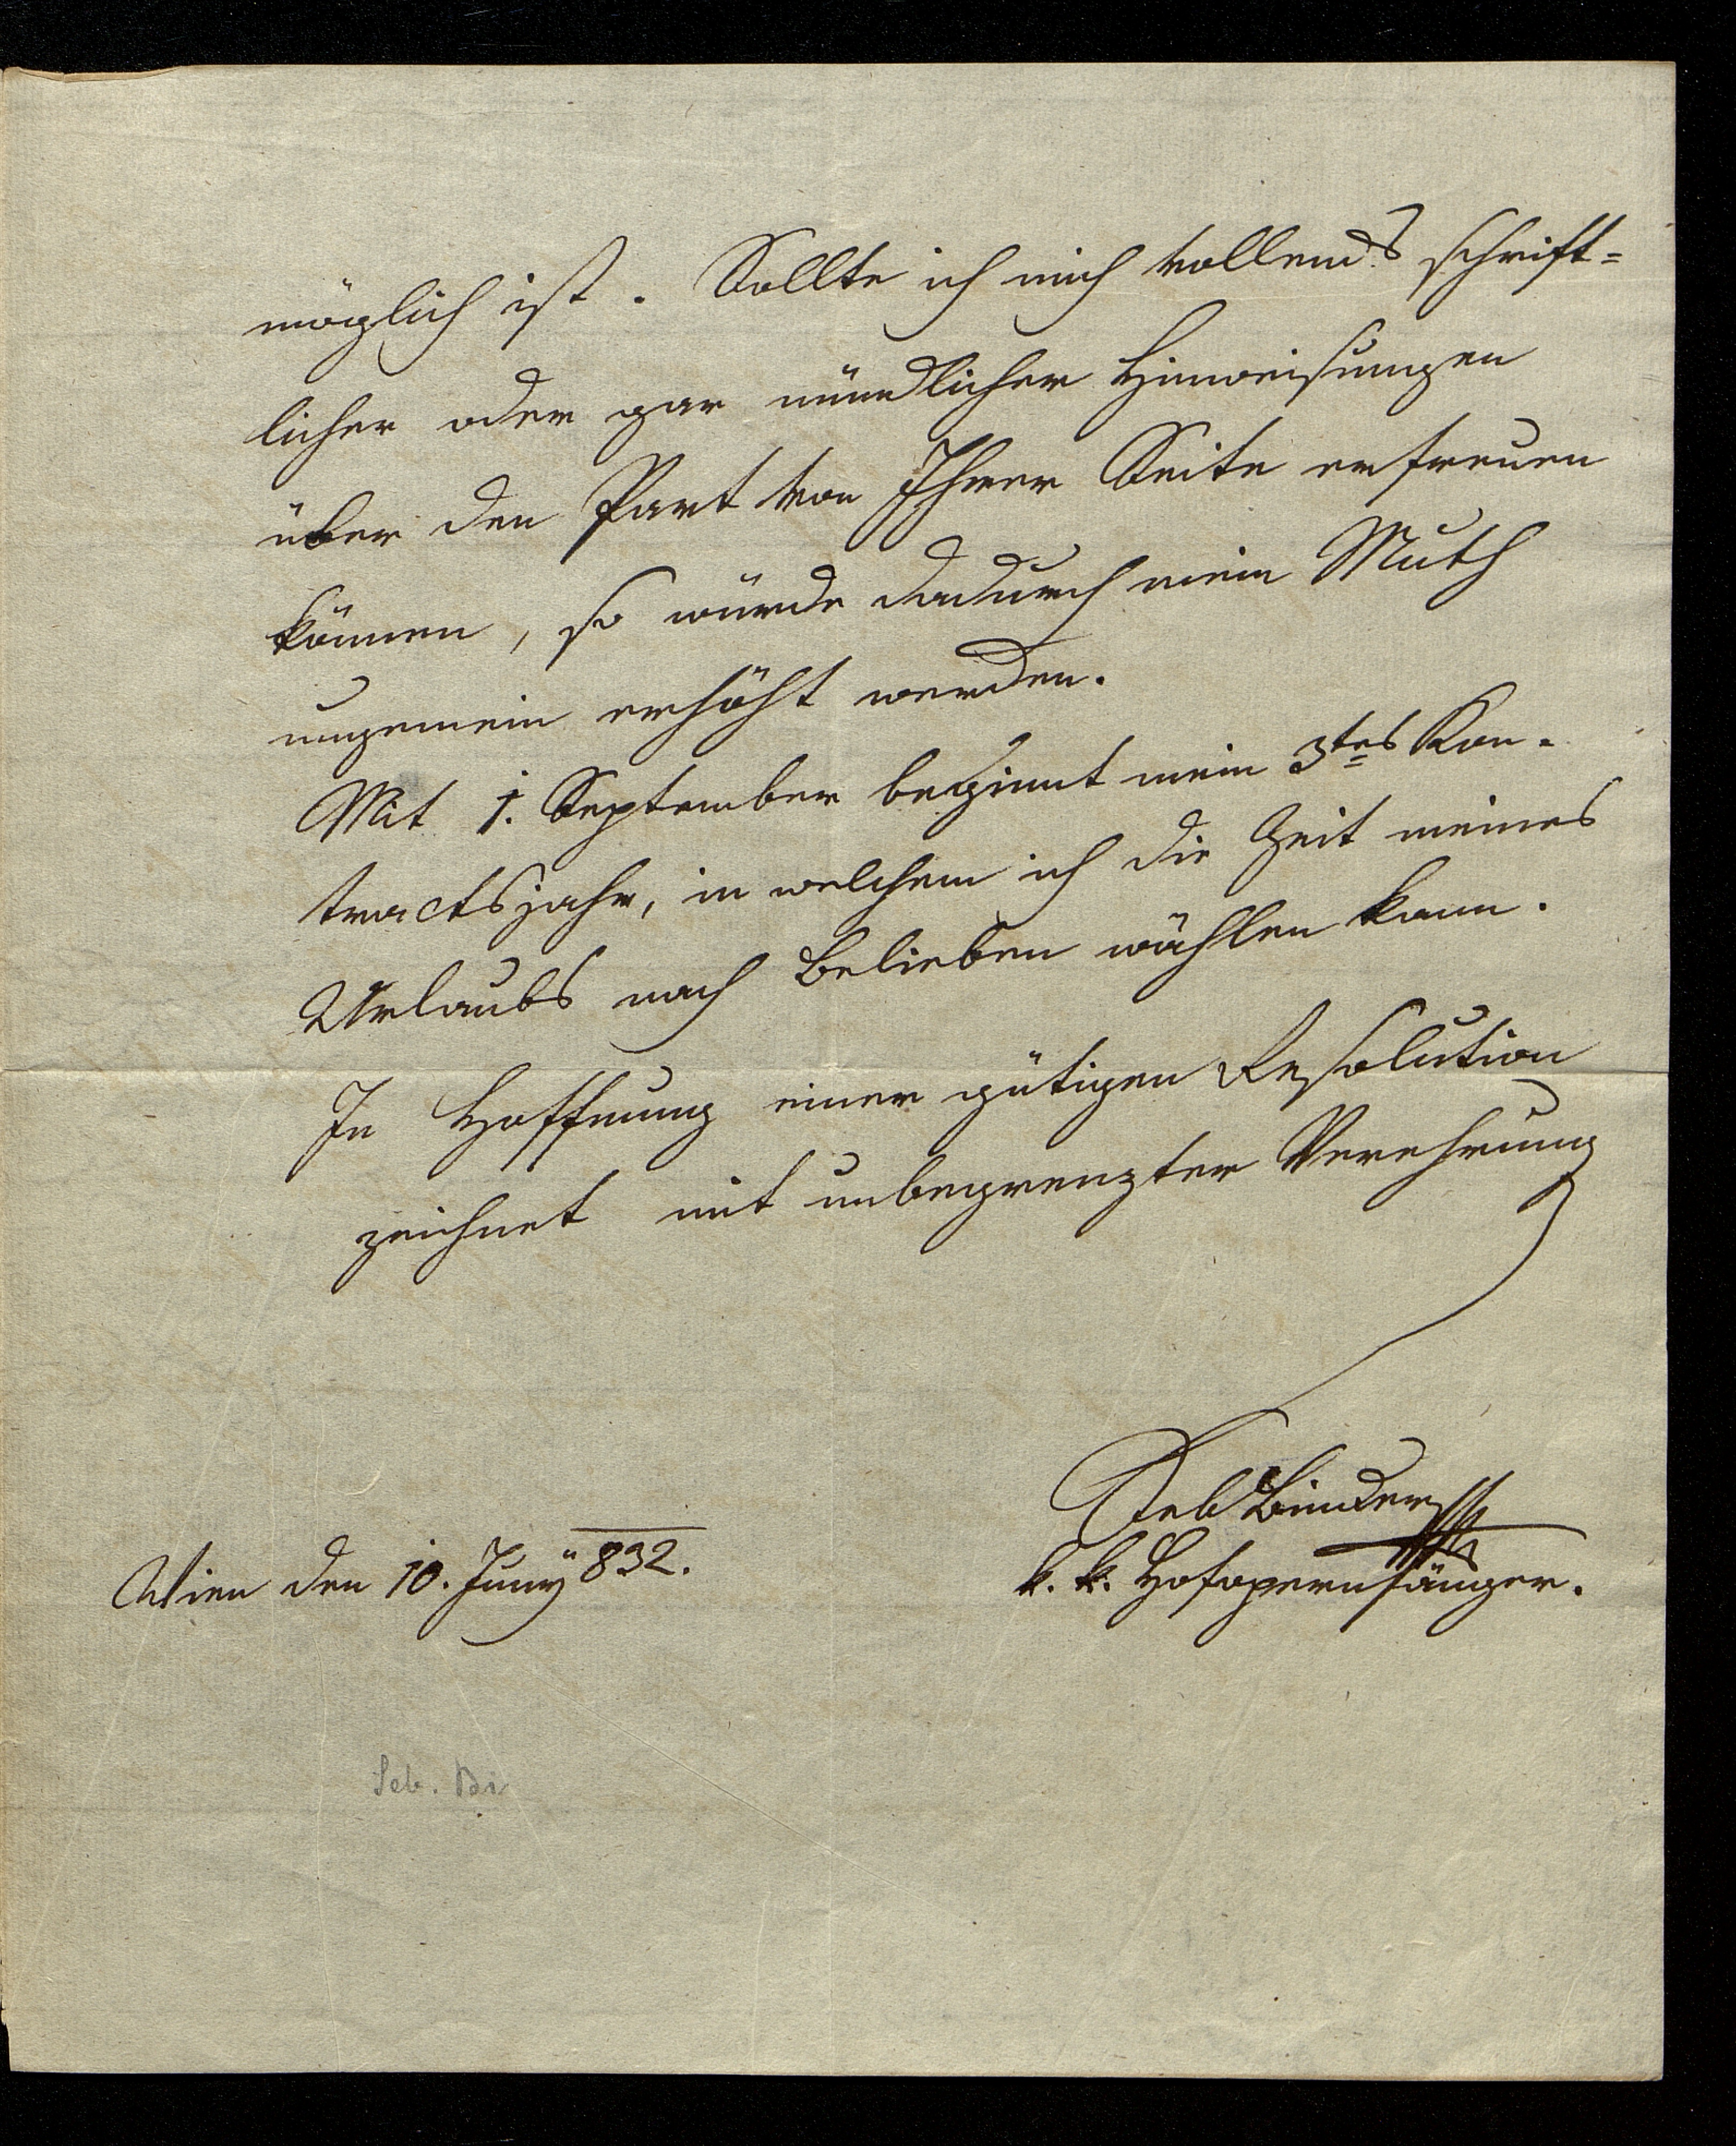 möglich ist. Sollte ich mich vollends schrift=
licher oder gar mündlicher Hinweisungen
über den Part von Ihrer Seite erfreuen
können, so würde dadurch mein Muth
ungemein erhöht werden.
Mit 1. September beginnt mein 3tes Kon-
tractsjahr, in welchem ich die Zeit meines
Urlaubs nach Belieben wählen kann.
In Hoffnung einer gütigen Resolution
zeichnet mit unbegrenzter Verehrung
Seb Binder
k. k. Hofopernsänger.
Wien den 10. Juny 832.
Seb. Bi